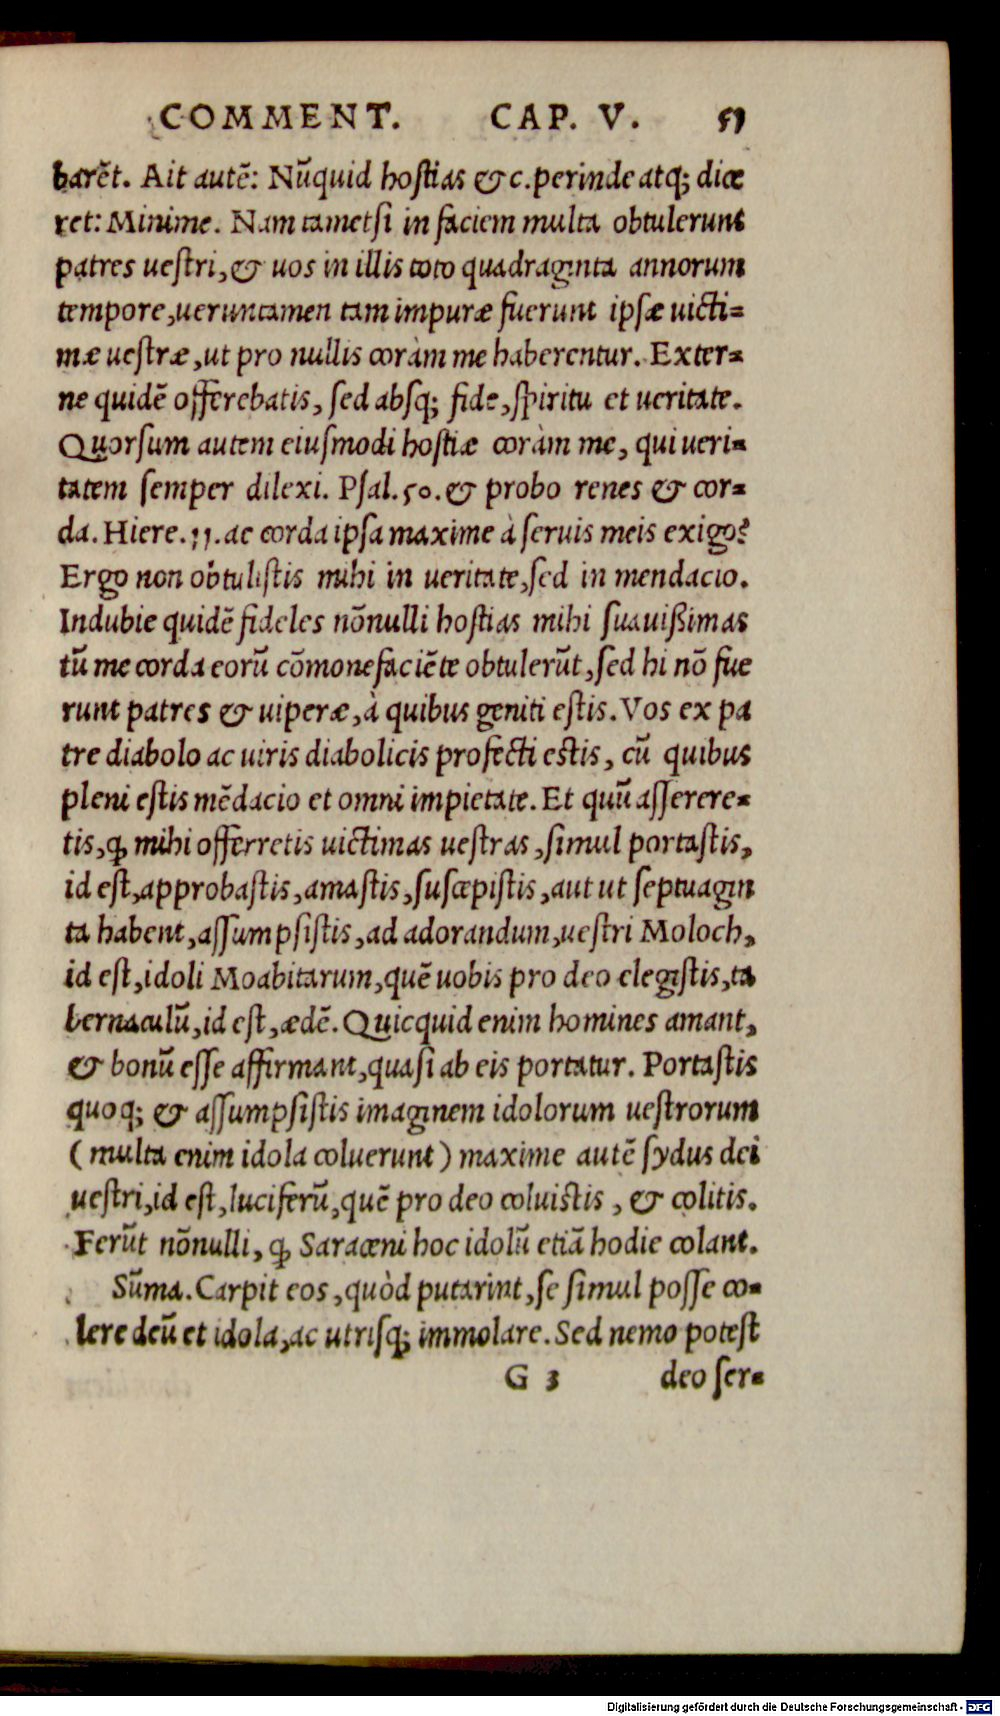 COMMENT. CAP. V. 51
barēt. Ait autē: Nūquid hostias & c. perinde atq; dice
ret: Minime. Nam tametsi in faciem multa obtulerunt
patres uestri, & uos in illis toto quadraginta annorum
tempore, ueruntamen tam impuræ fuerunt ipsæ uicti=
mæ uestræ, ut pro nullis coràm me haberentur. Exter=
ne quidē offerebatis, sed absq; fide, spiritu et ueritate.
Quorsum autem eiusmodi hostiæ coràm me, qui ueri=
tatem semper dilexi. Psal. 50. & probo renes & cor=
da. Hiere. 11. ac corda ipsa maxime à seruis meis exigo?
Ergo non obtulistis mihi in ueritate, sed in mendacio.
Indubie quidē fideles nōnulli hostias mihi suauißimas
tū me corda eorū cōmonefaciēte obtulerūt, sed hi nō fue
runt patres & uiperæ, à quibus geniti estis. Vos ex pa
tre diabolo ac uiris diabolicis profecti estis, cū quibus
pleni estis mēdacio et omni impietate. Et quū asserere=
tis, ꝙ mihi offerretis uictimas uestras, simul portastis,
id est, approbastis, amastis, suscepistis, aut ut septuagin
ta habent, assumpsistis, ad adorandum, uestri Moloch,
id est, idoli Moabitarum, quē uobis pro deo elegistis, ta
bernaculū, id est, ædē. Quicquid enim homines amant,
& bonū esse affirmant, quasi ab eis portatur. Portastis
quoq; & assumpsistis imaginem idolorum uestrorum
(multa enim idola coluerunt) maxime autē sydus dei
uestri, id est, luciferū, quē pro deo coluistis, & colitis.
Ferūt nōnulli, ꝙ Saraceni hoc idolū etiā hodie colant.
Sūma. Carpit eos, quòd putarint, se simul posse co=
lere deū et idola, ac utrisq; immolare. Sed nemo potest
G 3 deo ser=
Digitalisierung gefördert durch die Deutsche Forschungsgemeinschaft - DFG